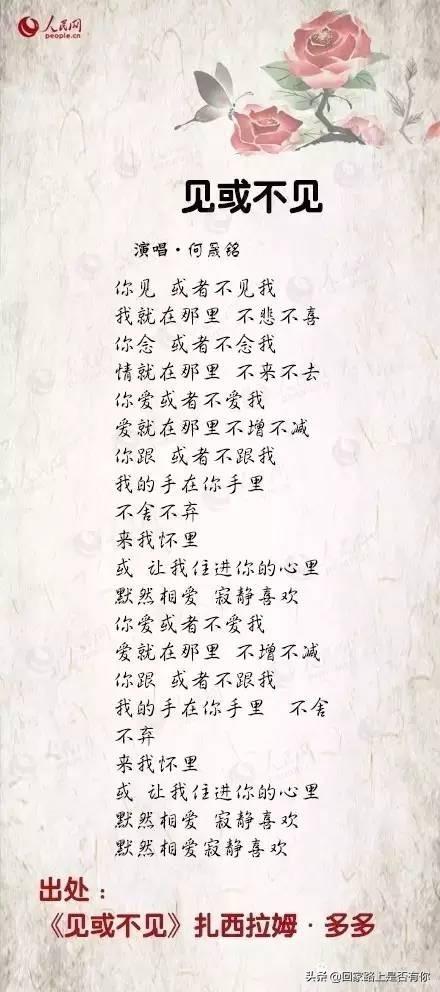 人民网
people.cn
见或不见
演唱·何晟铭
你见 或者不见我
我就在那里 不悲不喜
你念 或者不念我
情就在那里 不来不去
你爱或者不爱我
爱就在那里不增不减
你跟 或者不跟我
我的手在你手里
不舍不弃
来我怀里
或 让我住进你的心里
默然相爱 寂静喜欢
你爱或者不爱我
爱就在那里 不增不减
你跟 或者不跟我
我的手在你手里 不舍
不弃
来我怀里
或 让我住进你的心里
默然相爱 寂静喜欢
默然相爱寂静喜欢
出处：
《见或不见》扎西拉姆·多多
头条 @回家路上是否有你